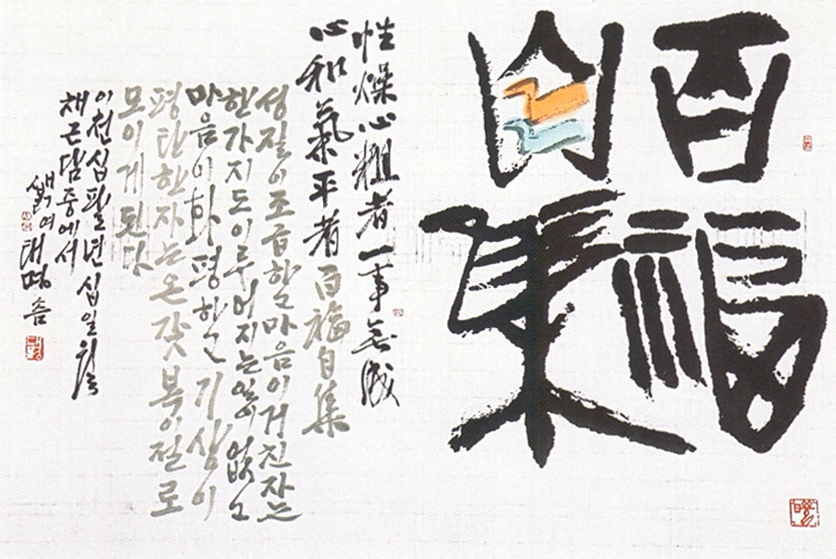 百福
自集
性燥心粗者一事無成
心和氣平者百福自集
성질이조급하고마음이거친자는
한가지도이루어지는일이없고
마음이화평하고기상이
평탄한자는온갖복이절로
모이게된다
이천십팔년십일월
채근담중에서